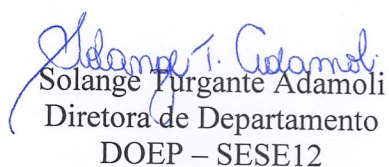 Solange T. Adamoli
Solange Turgante Adamoli
Diretora de Departamento
DOEP – SESE12